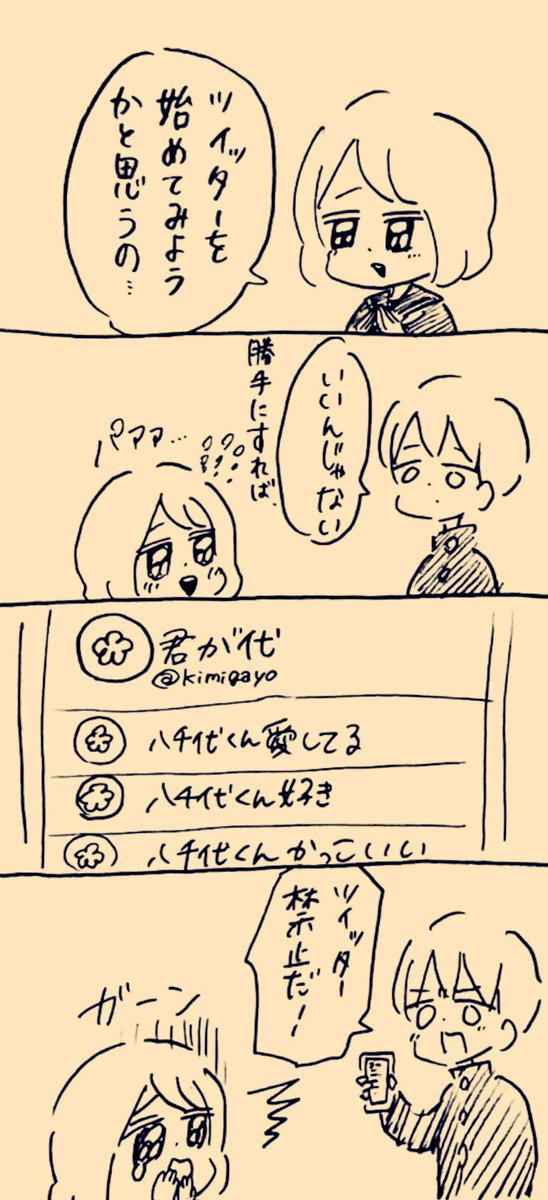 ツイッターを
始めてみよう
かと思うの…
いいんじゃない
勝手にすれば
パァァ…
君が代
@kimigayo
八千代くん愛してる
八千代くん好き
八千代くんかっこいい
ツイッター
禁止だー!
ガーン